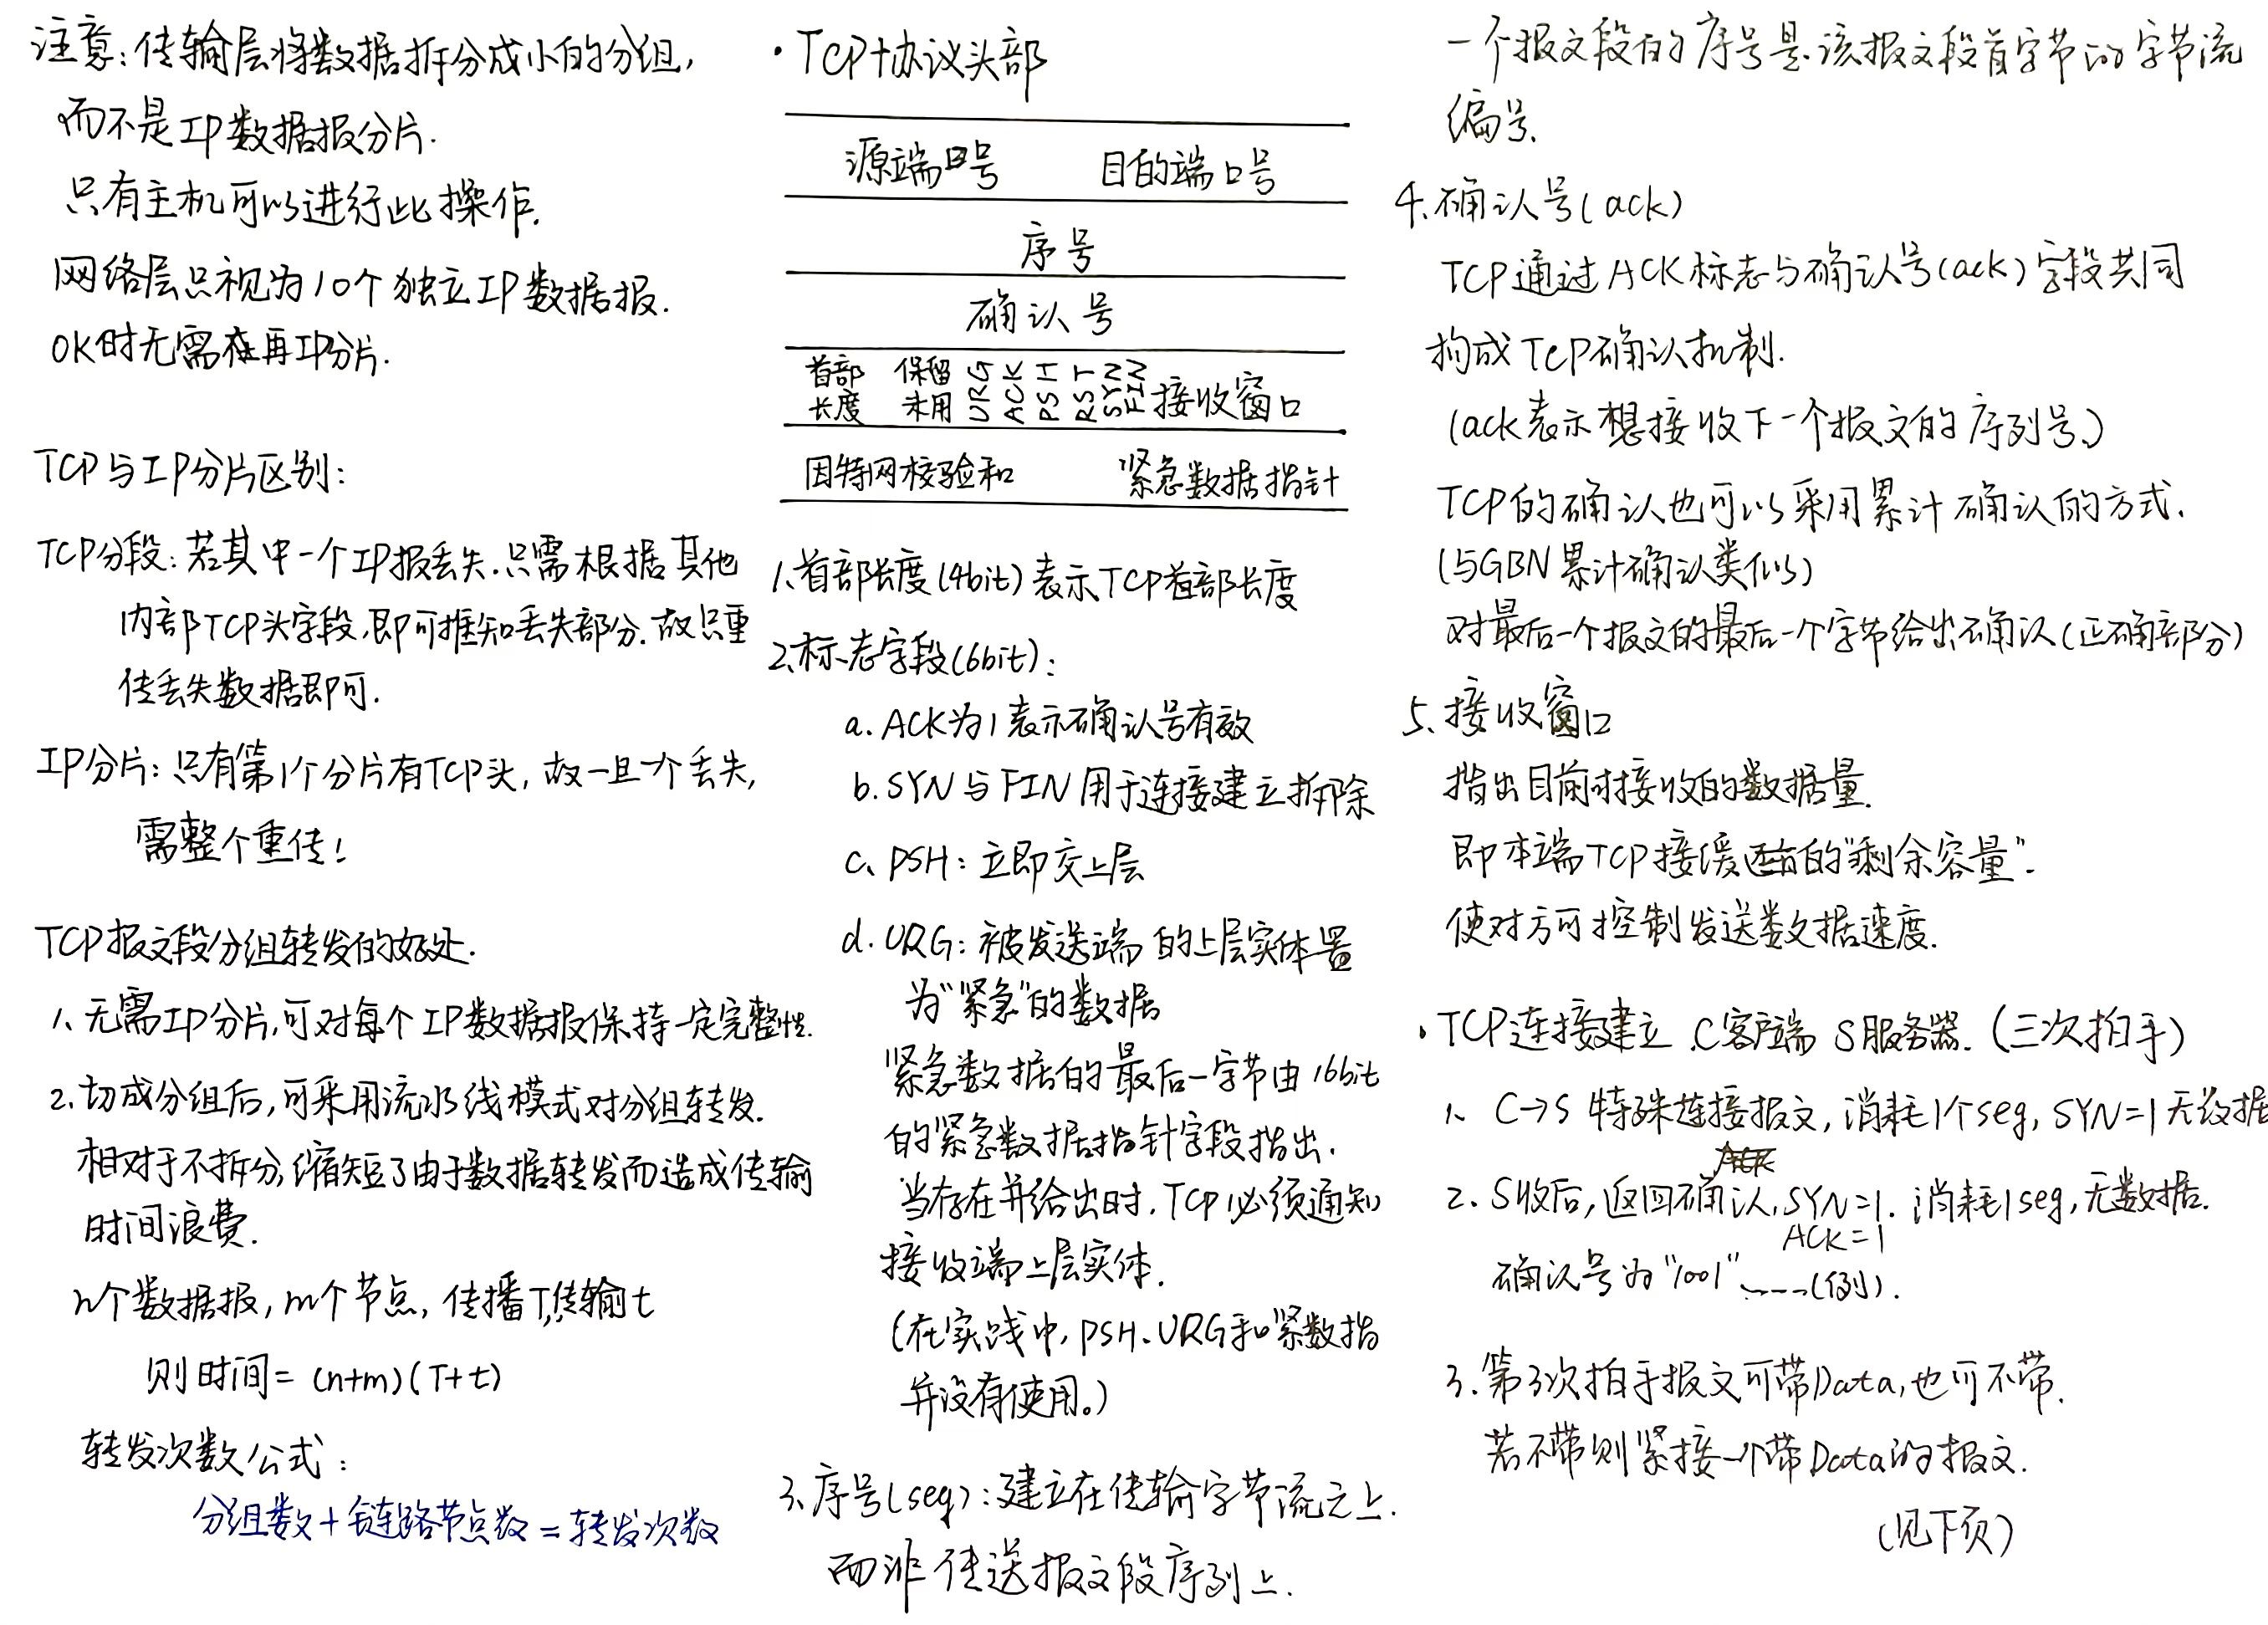 注意：传输层将数据拆分成小的分组，
而不是IP数据报分片.
只有主机可以进行此操作.
网络层只视为10个独立IP数据报.
OK时无需在再IP分片.
TCP与IP分片区别：
TCP分段：若其中一个IP报丢失.只需根据其他
内部TCP头字段,即可推知丢失部分.故只重
传丢失数据即可.
IP分片：只有第1个分片有TCP头，故一旦一个丢失，
需整个重传！
TCP报文段分组转发的好处.
1、无需IP分片,可对每个IP数据报保持一定完整性.
2.切成分组后,可采用流水线模式对分组转发.
相对于不拆分,缩短了由于数据转发而造成传输
时间浪费.
n个数据报，m个节点，传播T,传输t
则时间=(n+m)(T+t)
转发次数公式：
分组数+链路节点数=转发次数
·TCP协议头部
源端口号 目的端口号
序号
确认号
首部长度 保留未用 URG ACK PSH RST SYN FIN 接收窗口
因特网校验和 紧急数据指针
1、首部长度(4bit)表示TCP首部长度
2、标志字段(6bit)：
a. ACK为1表示确认号有效
b. SYN与FIN用于连接建立拆除
c、PSH：立即交上层
d. URG：被发送端的上层实体置
为"紧急"的数据
紧急数据的最后一字节由16bit
的紧急数据指针字段指出.
当存在并给出时,TCP必须通知
接收端上层实体.
(在实践中,PSH、URG和紧数指
并没有使用。)
3、序号(seq)：建立在传输字节流之上.
而非传送报文段序列上.
一个报文段的序号是该报文段首字节的字节流
编号.
4.确认号(ack)
TCP通过ACK标志与确认号(ack)字段共同
构成TCP确认机制.
(ack表示想接收下一个报文的序列号.)
TCP的确认也可以采用累计确认的方式.
(与GBN累计确认类似)
对最后一个报文的最后一个字节给出确认(正确部分)
5、接收窗口
指出目前对接收的数据量.
即本端TCP接缓的"剩余容量".
使对方可控制发送数据速度.
·TCP连接建立 C客户端 S服务器.(三次拍手)
1、C→S 特殊连接报文,消耗1个seq, SYN=1 无数据
2. S收后,返回确认,SYN=1. 消耗1seq,无数据.
ACK=1
确认号为"1001"----(例).
3.第3次拍手报文可带Data,也可不带.
若不带则紧接一个带Data的报文.
(见下页)